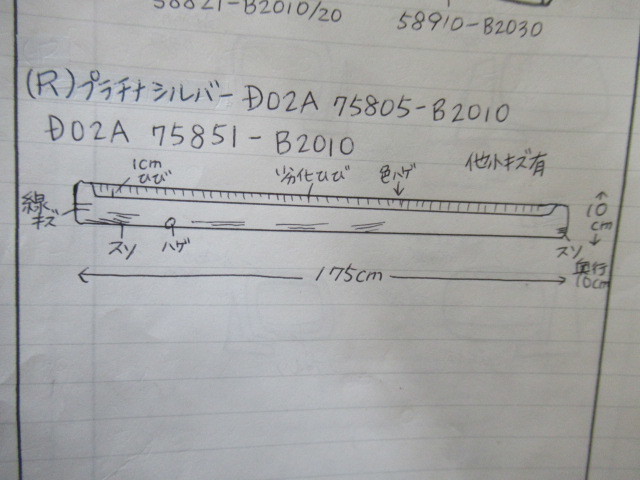 58821-B2010/20
58910-B2030
(R)プラチナシルバー D02A 75805-B2010
D02A 75851-B2010
1cm
ひび
劣化ひび
色ハゲ
他小キズ有
線
キズ
スソ
ハゲ
10
cm
スソ
奥行
10cm
175cm